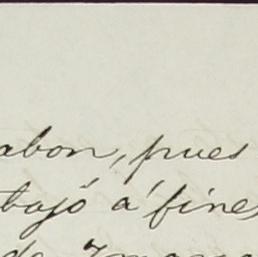 abon, pues
bajó á fines
de